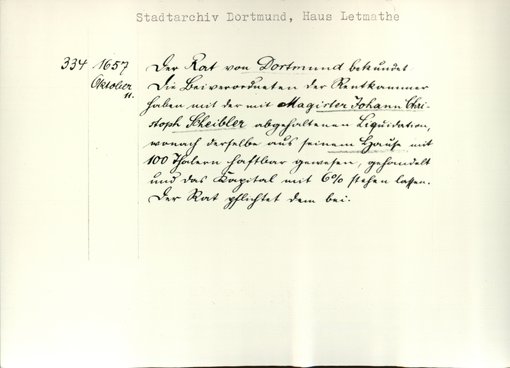 Stadtarchiv Dortmund, Haus Letmathe
334 1657 Der Rat von Dortmund bekundet
Oktober Die Beiverordneten der Rentkammer
11. haben mit der mit Magister Johann Chri-
stoph Scheibler abgehaltenen Liquidation,
wonach derselbe aus seinem Hause mit
100 Thalern haftbar gewesen, gehandelt
und das Kapital mit 6% stehen lassen.
Der Rat pflichtet dem bei.